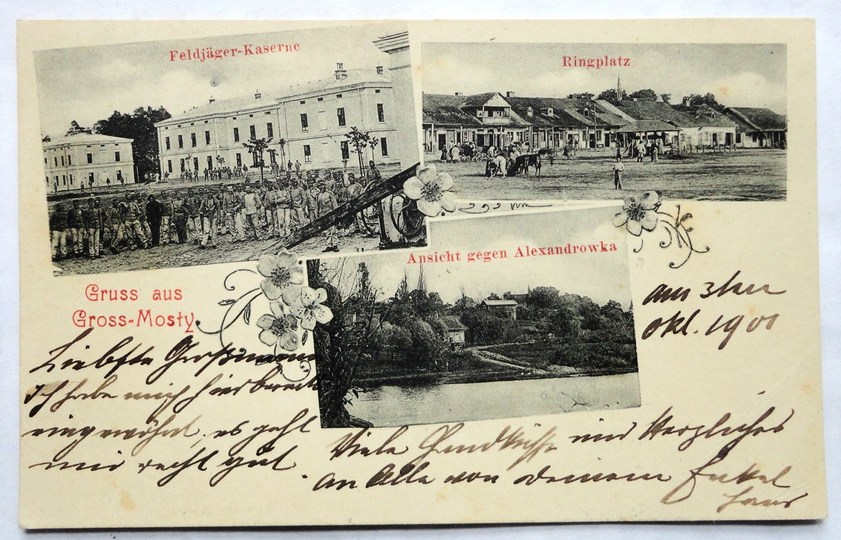 Feldjäger-Kaserne
Ringplatz
Ansicht gegen Alexandrowka
Gruss aus
Gross-Mosty.
am 3ten
Okt. 1901
Liebste Großmama
Ich habe mich hier bereits
eingewöhnt. es geht
mir recht gut.
Viele Handküsse und Herzliches
an Alle von deinem Enkel